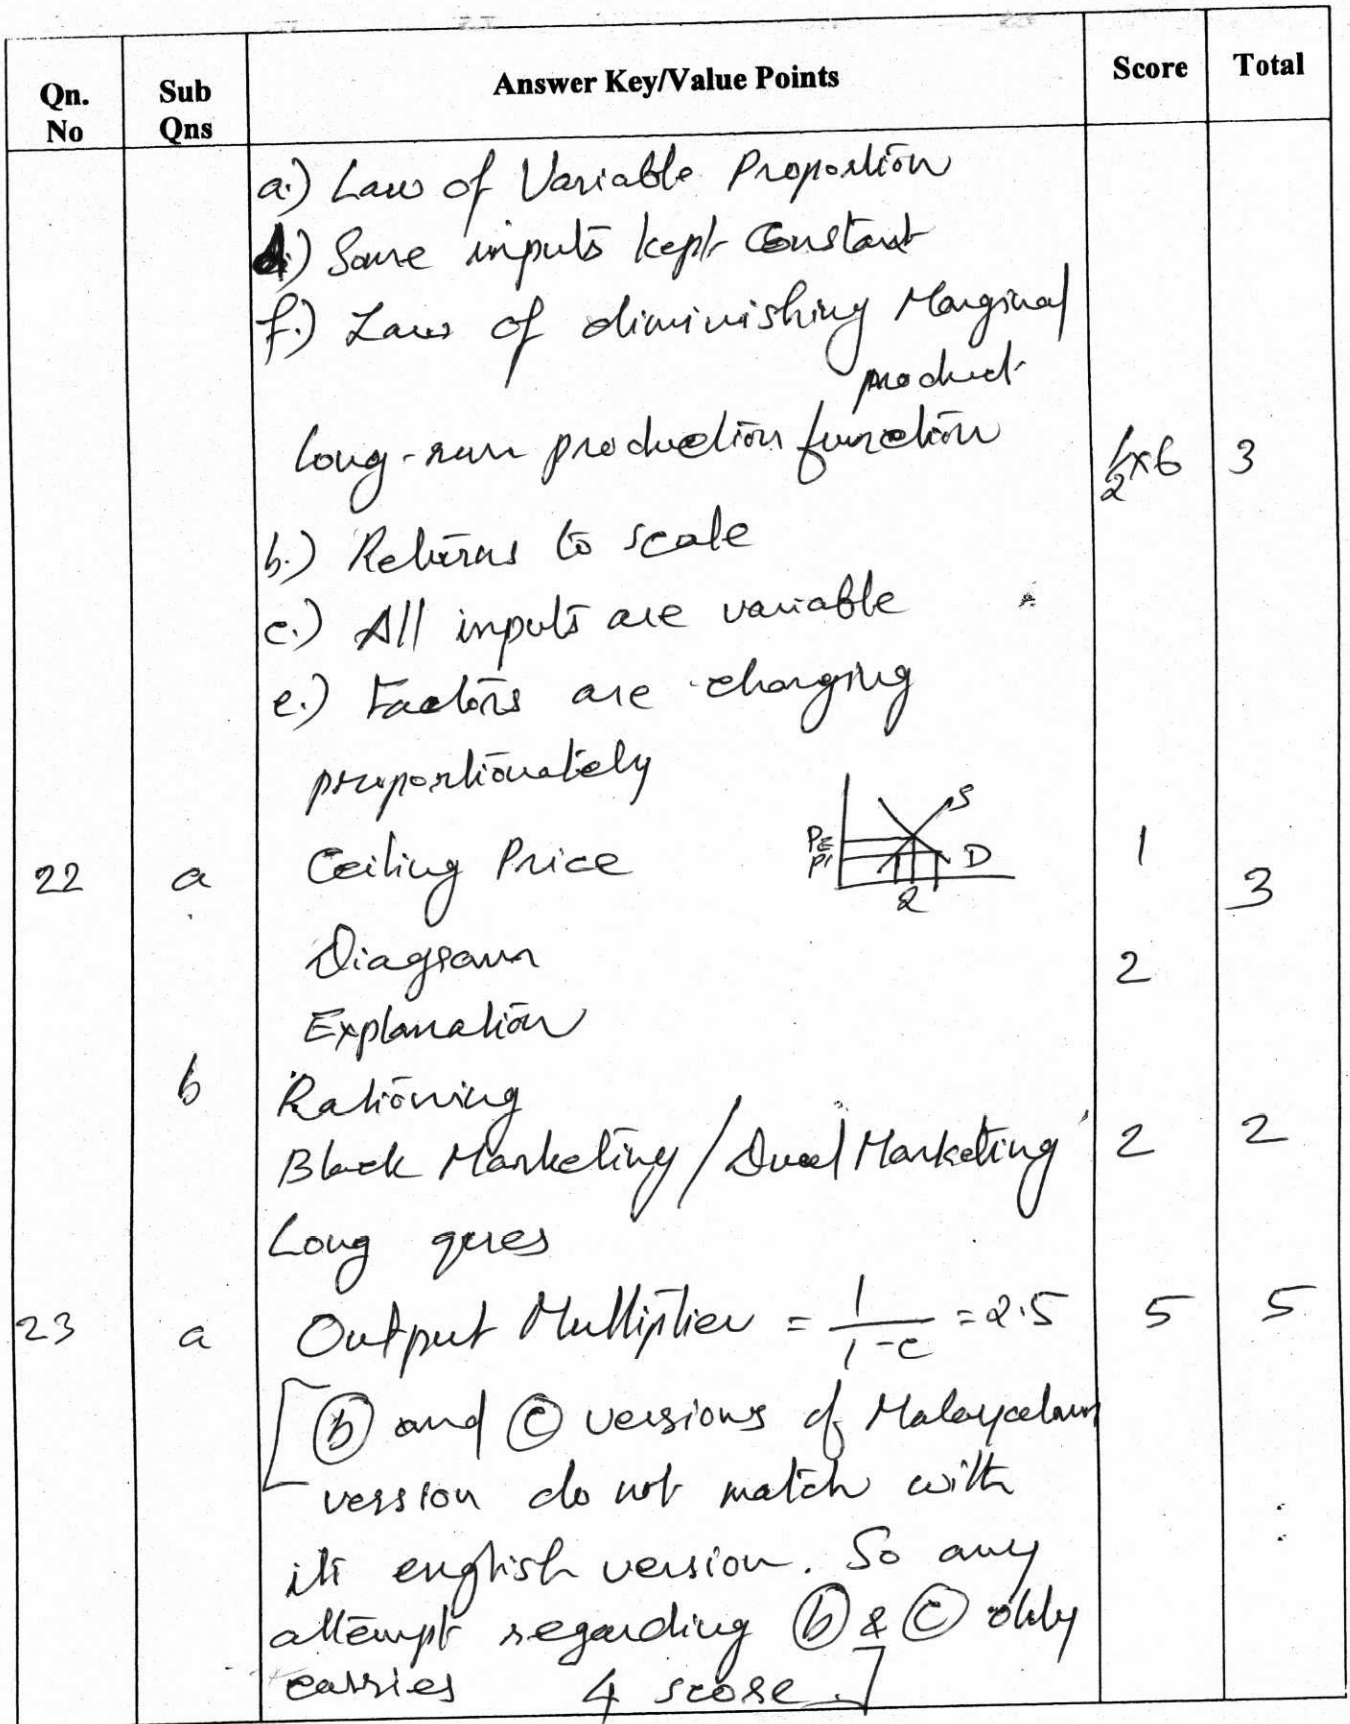 Qn. No Sub Qns Answer Key/Value Points Score Total
a.) Law of Variable Proportion
d.) Some inputs kept Constant
f.) Law of diminishing Marginal
product
Long-run production function 1/2x6 3
b.) Returns to scale
c.) All inputs are variable
e.) Factors are changing
proportionately
22 a Ceiling Price PE P1 S D Q 1 3
Diagram 2
Explanation
b Rationing
Black Marketing / Dual Marketing 2 2
Long ques
23 a Output Multiplier = 1/1-c = 2.5 5 5
[ⓑ and ⓒ versions of Malayalam
version do not match with
its english version. So any
attempt regarding ⓑ & ⓒ only
carries 4 score.]